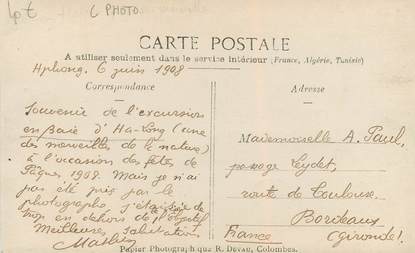 C PHOTO.
CARTE POSTALE
A utiliser seulement dans le service intérieur (France, Algérie, Tunisie)
Hphong. 6 juin 1908
Correspondance
Adresse
Souvenir de l'excursion
en baie d'Ha-Long (une
des merveilles de la nature)
à l'occasion des fêtes de
Pâques, 1908. Mais je n'ai
pas été pris par le
photographe, j'étais
trop en dehors de l'objectif
Meilleures salutations
Mademoiselle A. Paul,
passage Leydet,
route de Toulouse
Bordeaux
France (Gironde)
Papier Photographique R. Devau, Colombes.